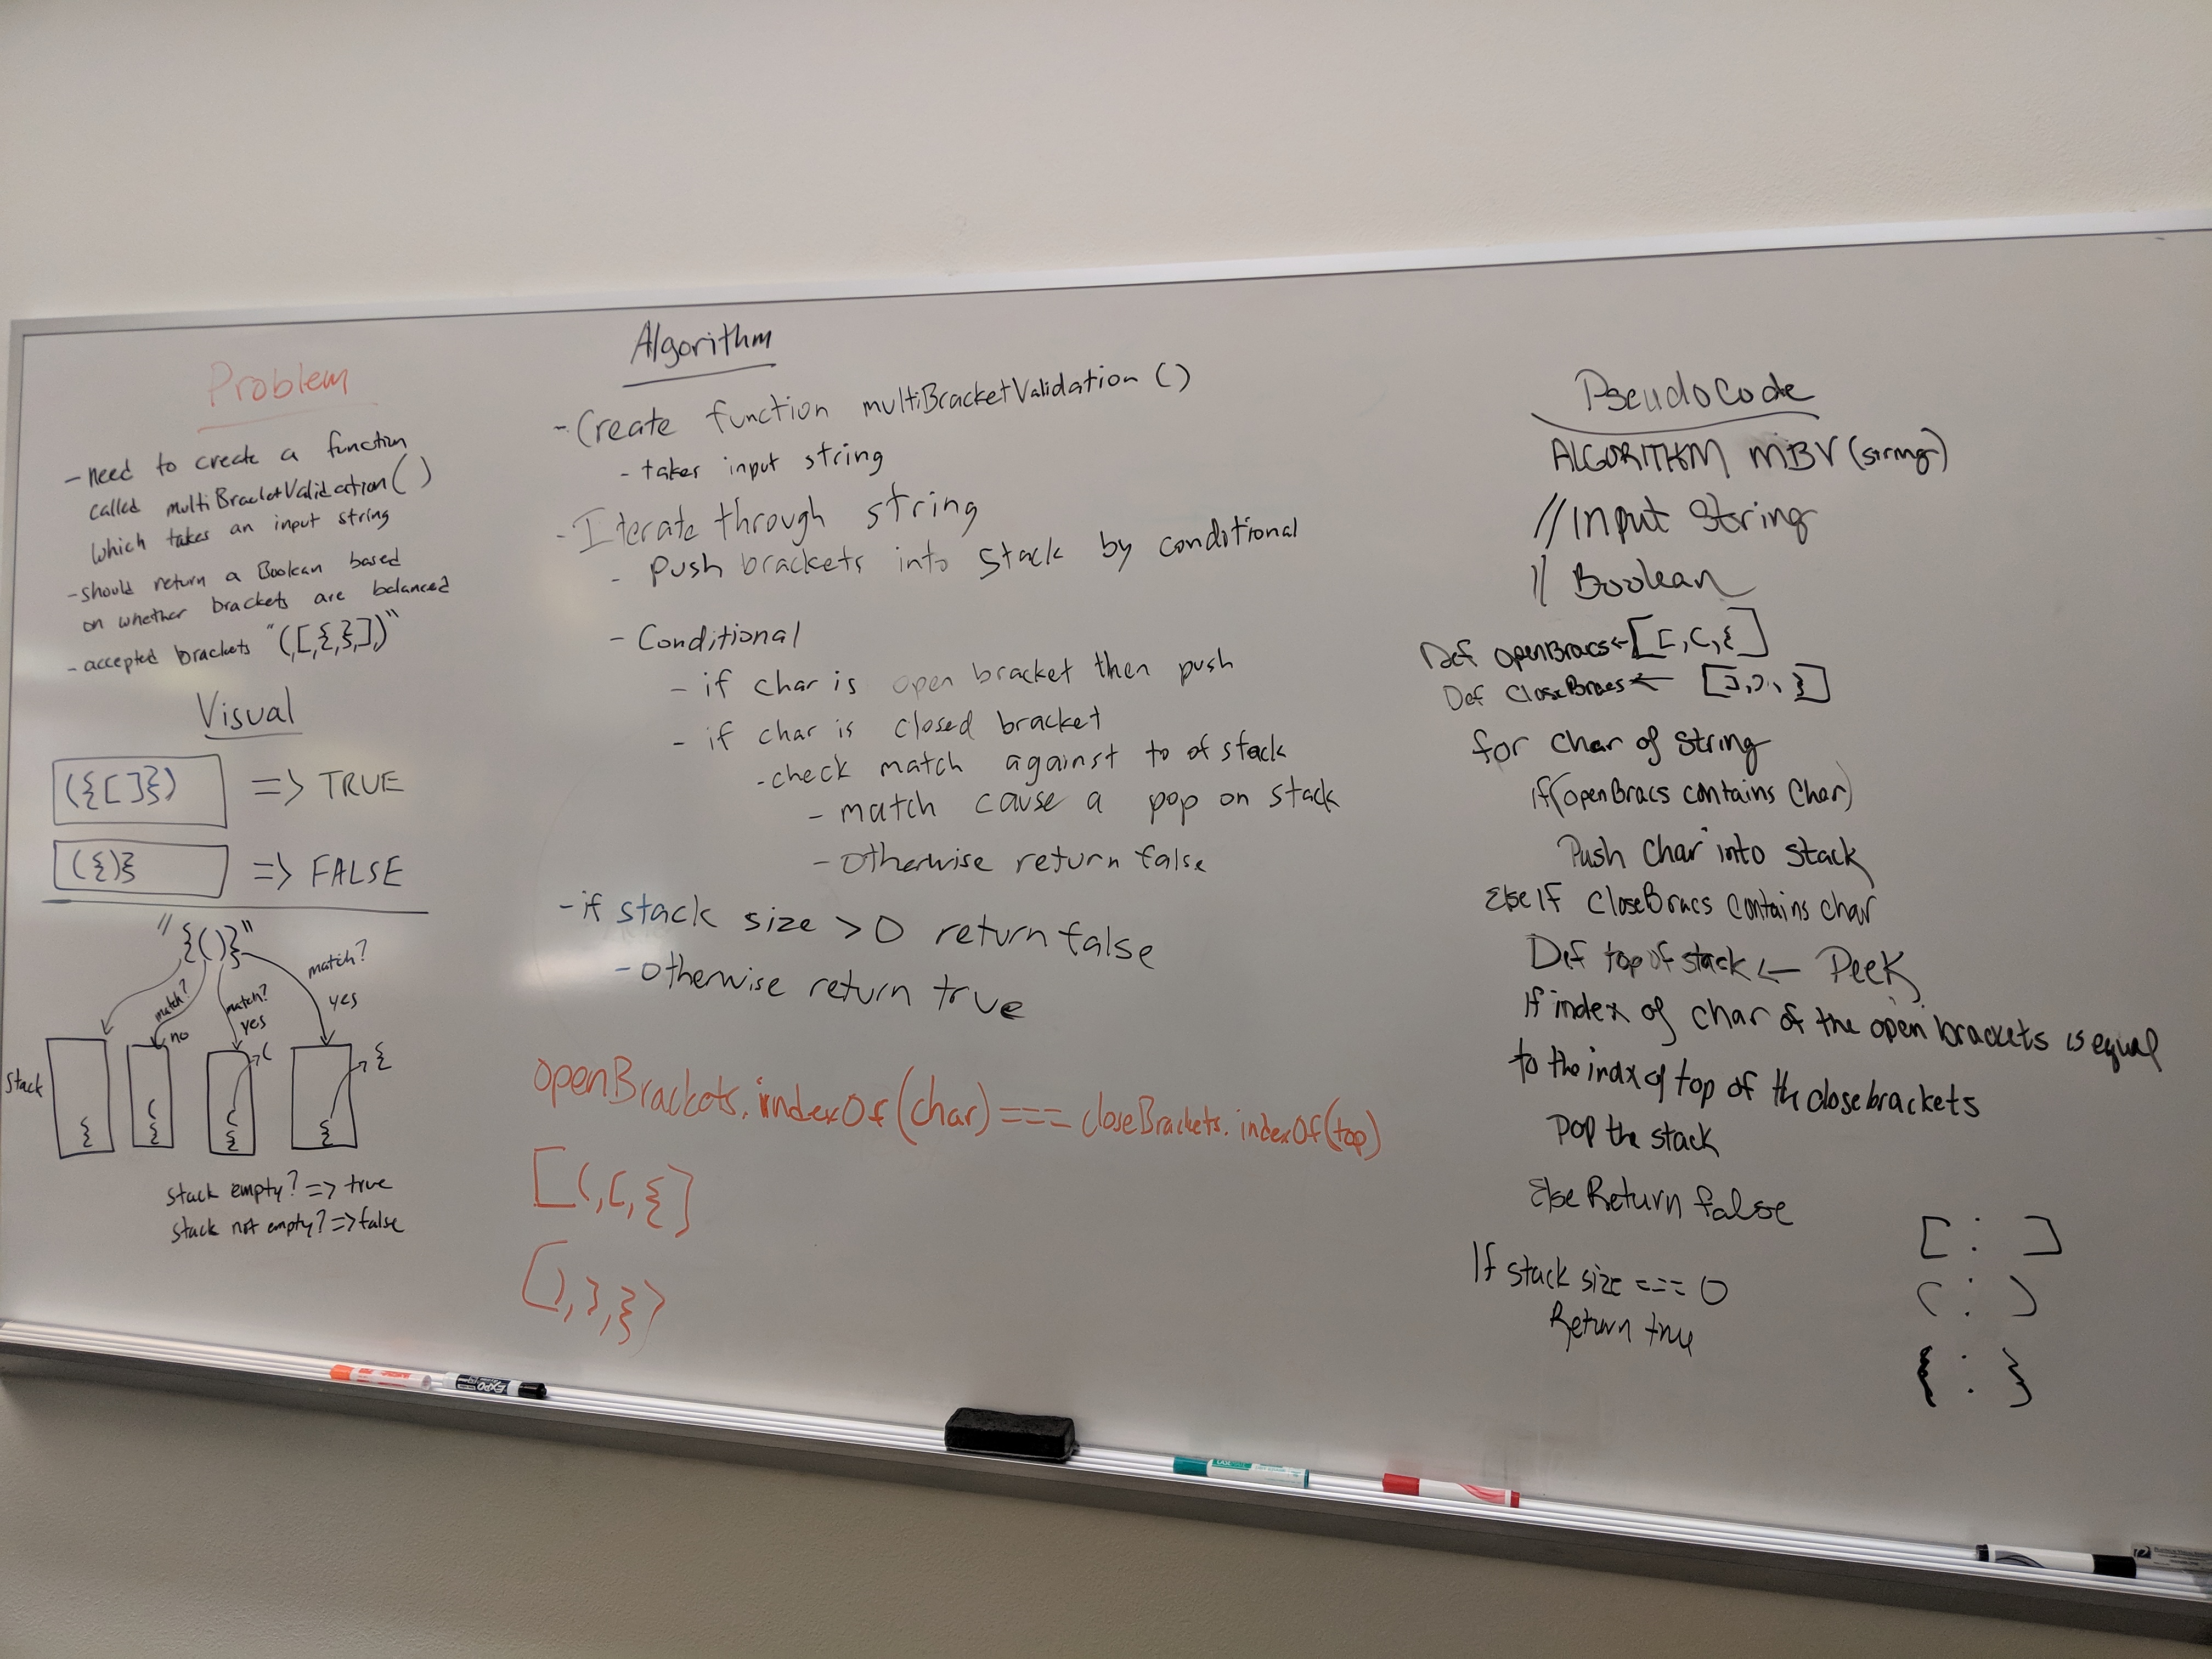 Problem
- need to create a function
called multiBracketValidation()
which takes an input string
- should return a Boolean based
on whether brackets are balanced
- accepted brackets "(,[,{,},],)"
Visual
({[]}) => TRUE
({)} => FALSE
"{()}"
match?
no
match?
yes
match?
yes
stack
{
(
{
(
(
{
{
{
stack empty? => true
stack not empty? => false
Algorithm
- Create function multiBracketValidation ()
- takes input string
- Iterate through string
- Push brackets into stack by conditional
- Conditional
- if char is open bracket then push
- if char is closed bracket
- check match against to of stack
- match cause a pop on stack
- otherwise return false
- if stack size > 0 return false
- otherwise return true
openBrackets.indexOf(char) === closeBrackets.indexOf(top)
[(,[,{]
[),],}]
PseudoCode
ALGORITHM MBV (string)
// Input String
// Boolean
Def openBracs ← [[,(,{]
Def CloseBracs ← [],),}]
for char of string
if(openBracs contains Char)
Push char into stack
Else If CloseBracs contains char
Def top of stack ← Peek
If index of char of the open brackets is equal
to the index of top of th close brackets
Pop the stack
Else Return false
If stack size === 0
Return true
[ : ]
( : )
{ : }
EXPO